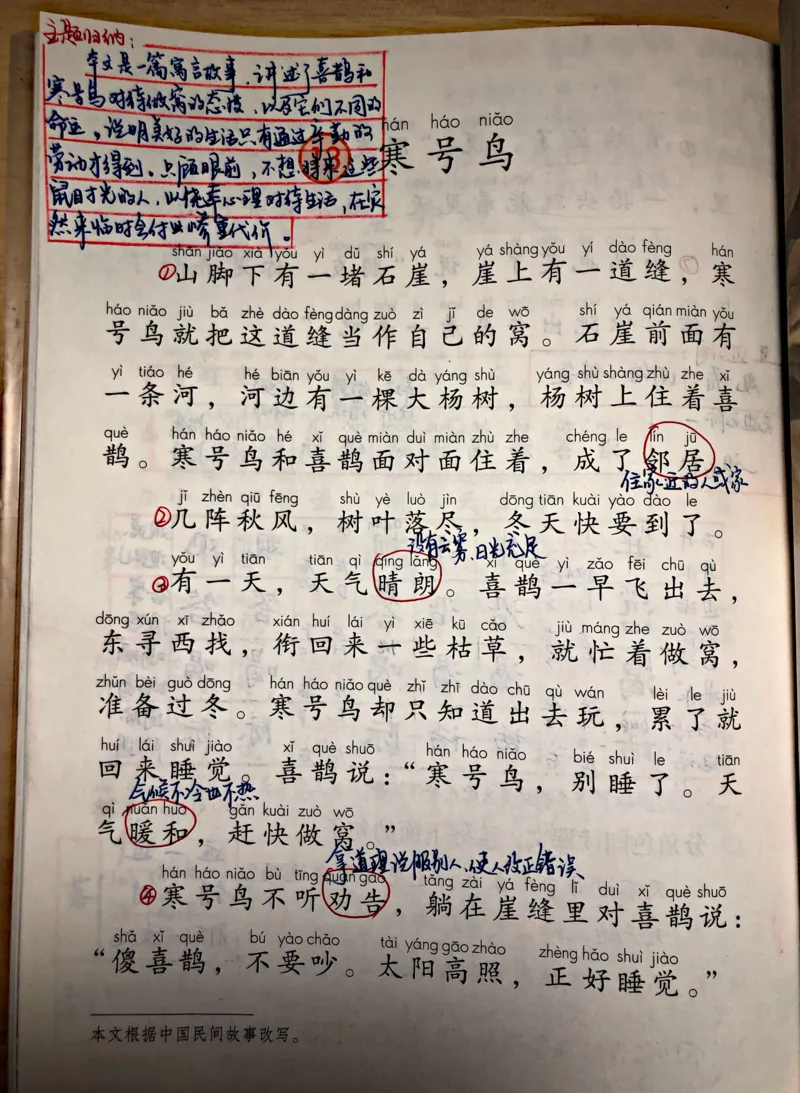 主题归纳：
本文是一篇寓言故事，讲述了喜鹊和
寒号鸟对待做窝的态度，以及它们不同的
命运，说明美好的生活只有通过辛勤的
劳动才得到。只顾眼前，不想将来这些
鼠目寸光的人，以侥幸心理对待生活，在灾
然来临时会付出惨重代价。
hán háo niǎo
13 寒号鸟
shān jiǎo xià yǒu yì dǔ shí yá yá shàng yǒu yí dào fèng hán
①山脚下有一堵石崖，崖上有一道缝，寒
háo niǎo jiù bǎ zhè dào fèng dàng zuò zì jǐ de wō shí yá qián miàn yǒu
号鸟就把这道缝当作自己的窝。石崖前面有
yì tiáo hé hé biān yǒu yì kē dà yáng shù yáng shù shàng zhù zhe xǐ
一条河，河边有一棵大杨树，杨树上住着喜
què hán háo niǎo hé xǐ què miàn duì miàn zhù zhe chéng le lín jū
鹊。寒号鸟和喜鹊面对面住着，成了邻居
住家近的人或家
jǐ zhèn qiū fēng shù yè luò jìn dōng tiān kuài yào dào le
②几阵秋风，树叶落尽，冬天快要到了。
没有云雾，日光充足
yǒu yì tiān tiān qì qíng lǎng xǐ què yì zǎo fēi chū qù
③有一天，天气晴朗。喜鹊一早飞出去，
dōng xún xī zhǎo xián huí lái yì xiē kū cǎo jiù máng zhe zuò wō
东寻西找，衔回来一些枯草，就忙着做窝，
zhǔn bèi guò dōng hán háo niǎo què zhǐ zhī dào chū qù wán lèi le jiù
准备过冬。寒号鸟却只知道出去玩，累了就
huí lái shuì jiào xǐ què shuō hán háo niǎo bié shuì le tiān
回来睡觉。喜鹊说：“寒号鸟，别睡了。天
气候不冷也不热
qì nuǎn huo gǎn kuài zuò wō
气暖和，赶快做窝。”
拿道理说服别人，使人改正错误
hán háo niǎo bù tīng quàn gào tǎng zài yá fèng lǐ duì xǐ què shuō
④寒号鸟不听劝告，躺在崖缝里对喜鹊说：
shǎ xǐ què bú yào chǎo tài yáng gāo zhào zhèng hǎo shuì jiào
“傻喜鹊，不要吵。太阳高照，正好睡觉。”
本文根据中国民间故事改写。